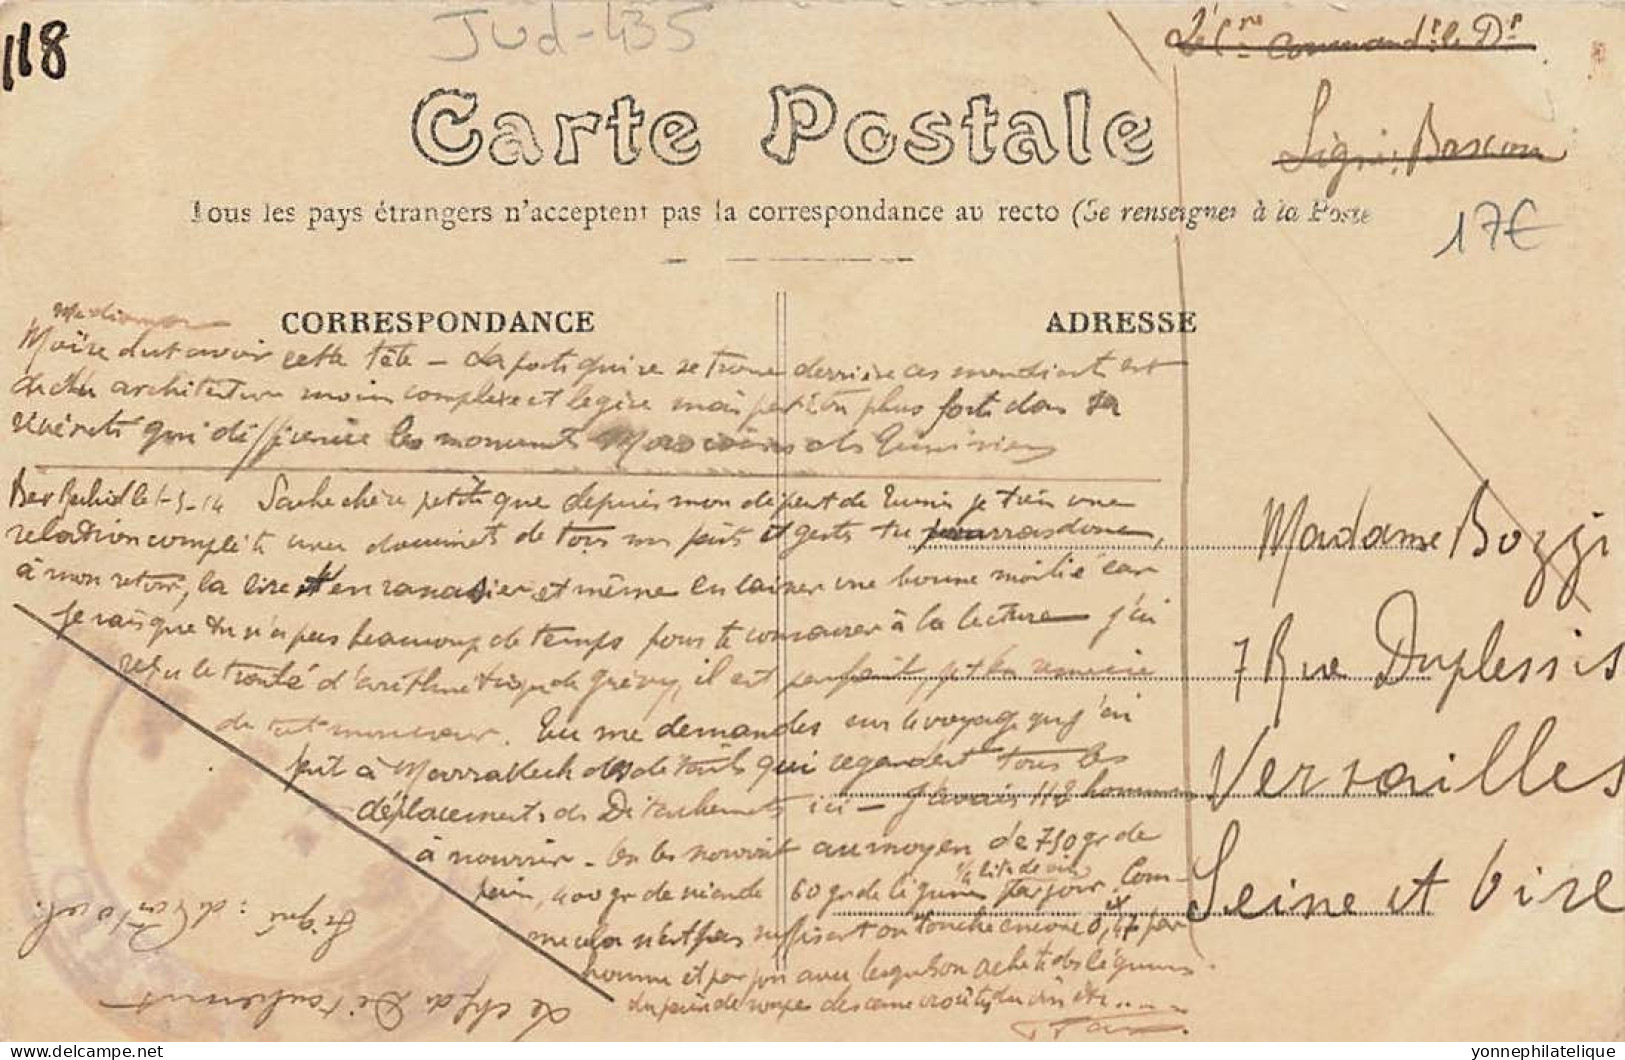 118
Jud-435
Carte Postale
Tous les pays étrangers n'acceptent pas la correspondance au recto (Se renseigner à la Poste
17€
CORRESPONDANCE
ADRESSE
dut avoir cette tête – La porte qui se trouve derrière ces mendiants est
architecture moins complexe et légère mais peut être plus forte dans sa
qui différencie les monuments Marocains des Tunisiens
Ber Rechid le 1-3-14 Sache chère petite que depuis mon départ de Tunis je tiens une
relation complète avec documents de tous mes faits et gestes tu pourras donc,
à mon retour, la lire et même en laisser une bonne moitié car
je sais que tu n'as pas beaucoup de temps pour te consacrer à la lecture J'ai
reçu le traité d'arithmétique de Grévy, il est parfait, je t'en remercie
de tout mon cœur. Tu me demandes sur le voyage que j'ai
fait à Marrakech des détails qui regardent tous les
déplacements de Détachements ici – J'avais 118 hommes
à nourrir – On les nourrit au moyen de 750 gr de
pain, 400 gr de viande 60 gr de légumes 1/4 litre de vin par jour. Com-
me cela n'est pas suffisant on touche encore 0,47 par
homme et par jour avec lesquels on achète des légumes
du pain de soupe du vin etc....
Signé :
Le chef de Détachement
Madame Bozzi
7 Rue Duplessis
Versailles
Seine et Oise
delcampe.net
yonnephilatelie